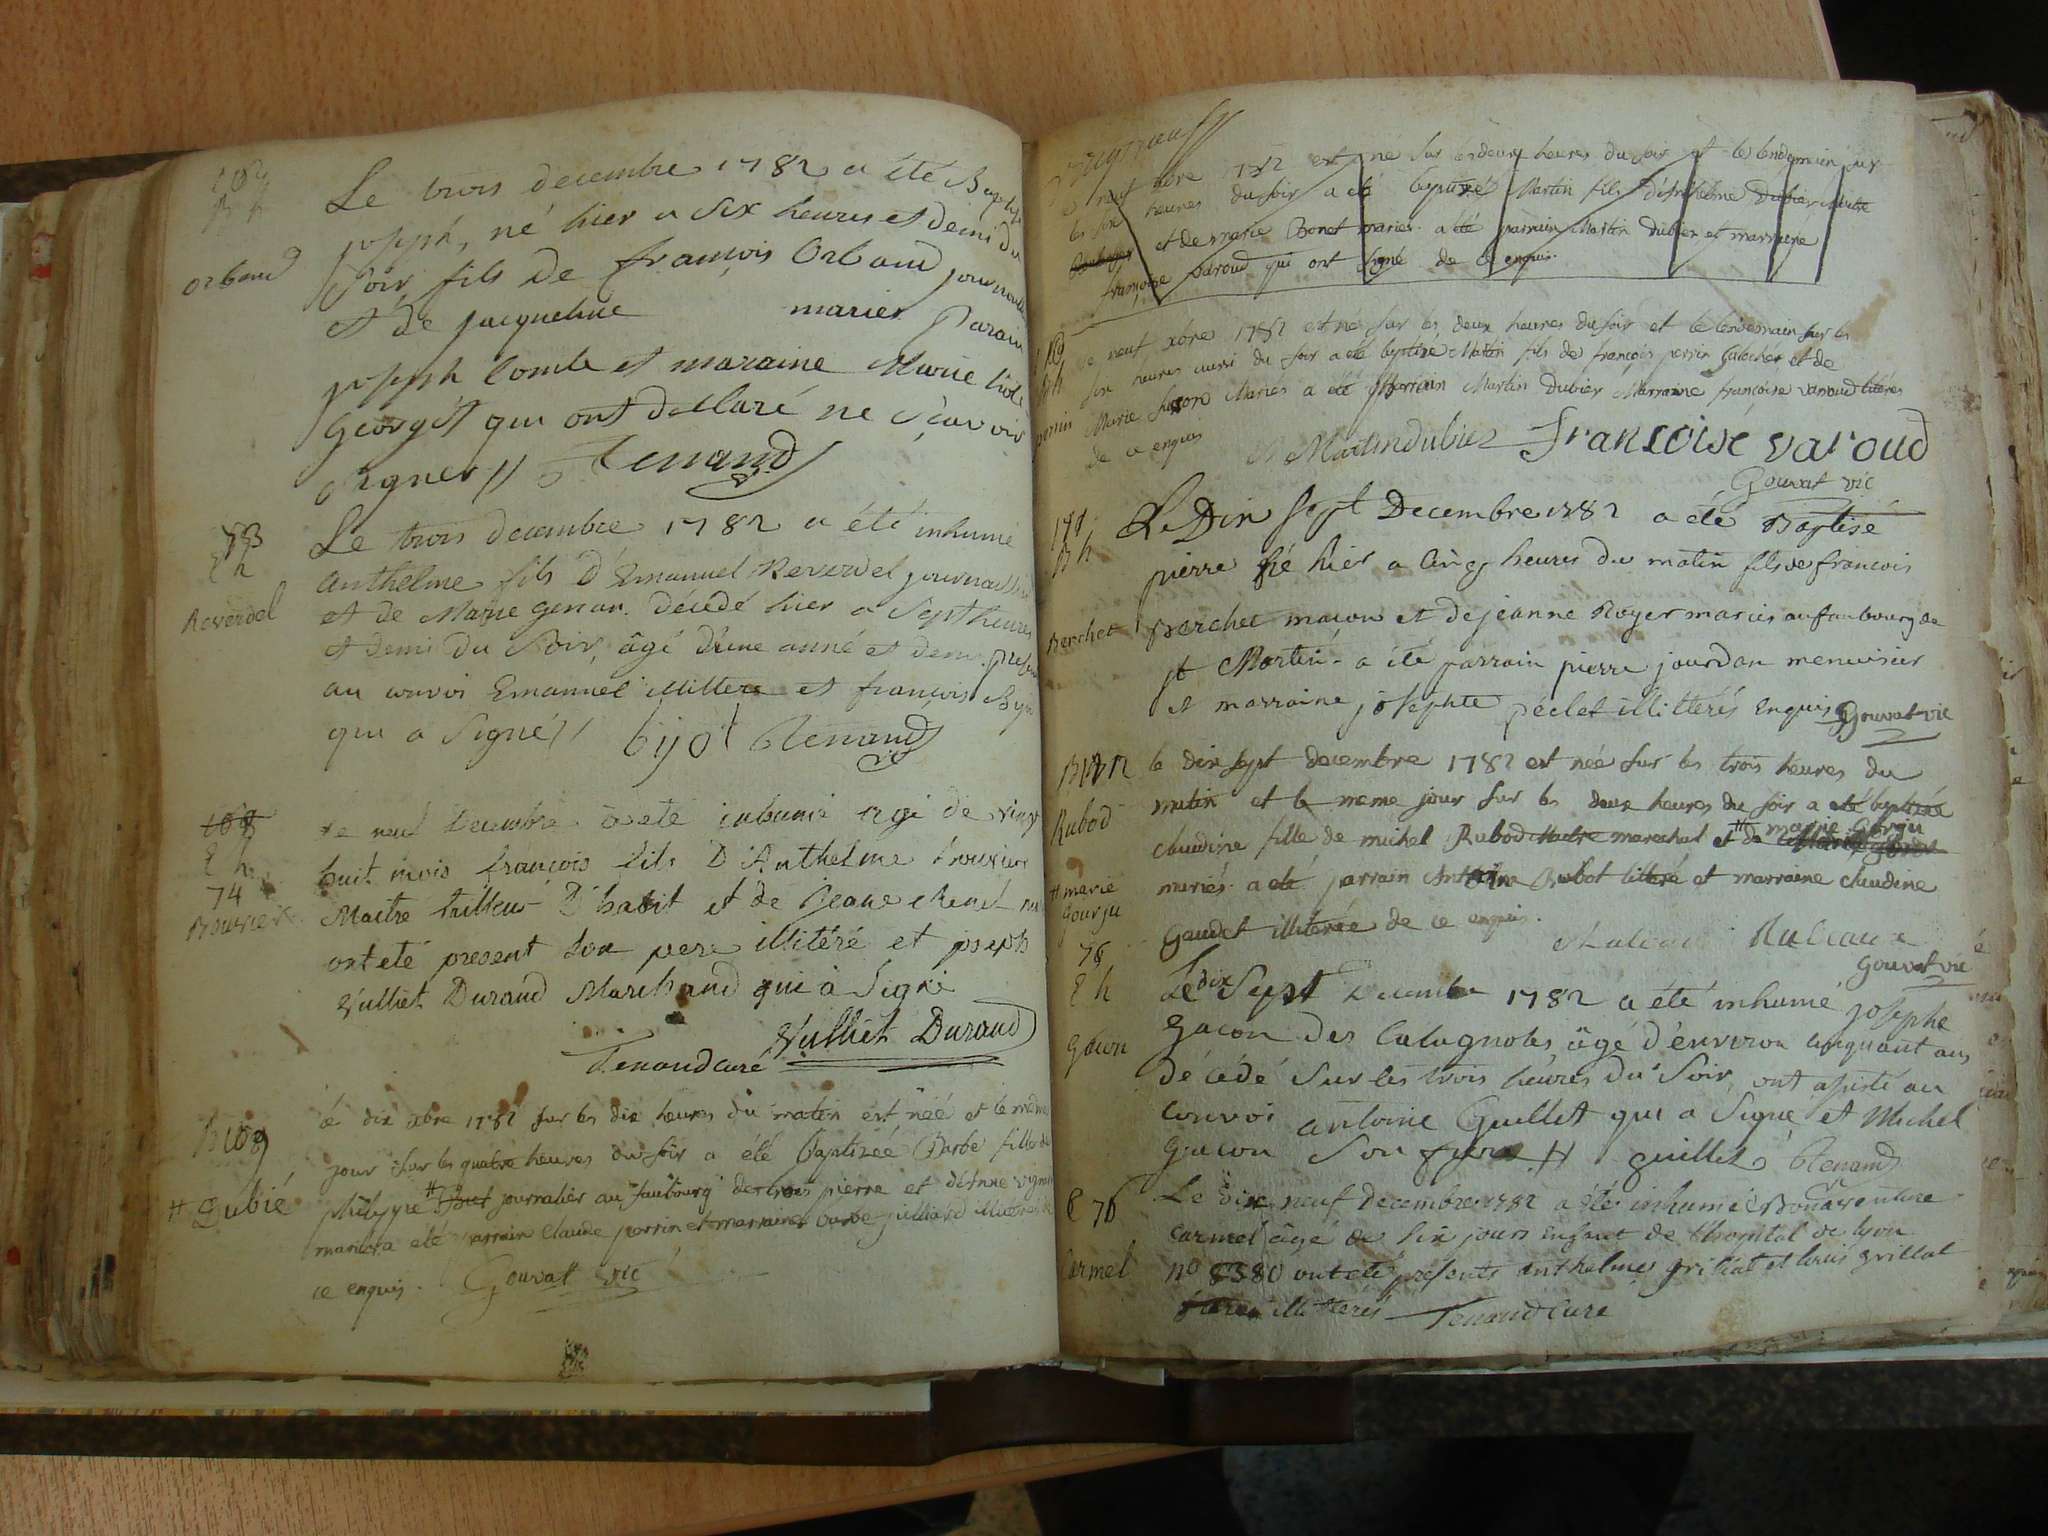 Le trois decembre 1782 a été Baptisé
joseph, né hier a six heures et demi du
Orband
soir fils de françois Orband journalier
et de jacqueline mariés Parain
joseph Comte et maraine Marie
Georget qui ont declaré ne scavoir
signer // Tenand
73
E h
Reverdel
Le trois decembre 1782 a été inhumé
anthelme fils d'Emanuel Reverdel journallier
et de Marie genan. décédé hier a sept heures
et demi du soir, âgé d'une anné et demi
au convoi Emanuel illittere et françois
qui a signé // byot Tenand
E h
74
Bouvier
Le neuf Decembre a eté inhumé agé de vingt
huit mois françois fils D'Anthelme bouvier
Maitre tailleur D'habit et de Jeane
ont eté present son pere illitéré et joseph
Vulliet Durand Marchand qui a signé
Vulliet Durand
Tenand curé
B 169
# Lubié
Le dix xbre 1782 sur les dix heures du matin est néé et le même
jour sur les quatre heures du soir a été baptizéé Barbe fille de
philippe # journalier au faubourg pierre et d'étienne
mariés a eté parrain Claude perrin et marraine barbe juilliard illiterés
ce enquis. Gouvat vic
le neuf xbre 1782 est né sur les deux heures du soir et le lendemain sur
les six heures du soir a été baptizé Martin fils d'Anthelme Dubier
et de marie Bonet mariés. a été parrain Martin Dubier et marraine
françoise Varoud qui ont signé de ce enquis.
170
B h
perrin
Le neuf xbre 1782 est né sur les deux heures du soir et le lendemain sur les
six heures aussi du soir a été baptizé Martin fils de françois perrin galocher et de
Marie mariés a été parrain Martin Dubier Marraine françoise varoud litérés
de ce enquis
Martin dubier françoise varoud
Gouvat vic
171
B h
Berchet
Le Dix sept Decembre 1782 a été Baptisé
pierre né hier a cinq heures du matin fils de francois
berchet macon et de jeanne Royer mariés au faubourg de
st Martin. a été parrain pierre jourdan menuisier
et marraine josephte péclet illitterés enquis Gouvat vic
B 172
Rubod
# marie
gourju
le dix sept decembre 1782 est néé sur les trois heures du
matin et le meme jour sur les deux heures du soir a été baptizéé
claudine fille de michel Rubod maitre marechal et de # marie gorju
mariés. a été parrain Antoine Rubot litéré et marraine claudine
Gaudet illiteréé de ce enquis.
Gouvat vic
75
E h
Gacon
Le dix sept decembre 1782 a été inhumé josephe
gacon des Catagnoles âgé d'environ cinquant ans
décédé sur les trois heures du soir, ont assisté au
convoi antoine Guillet qui a signé et Michel
gacon son frere // guillet Tenand
E 76
Carmel
Le dix neuf decembre 1782 a été inhumé Bonaventure
carmel âgé de six jours enfant de l'hopital de lyon
no 8380 ont eté présents anthelme grillat et louis grillat
illitterés Tenand Curé